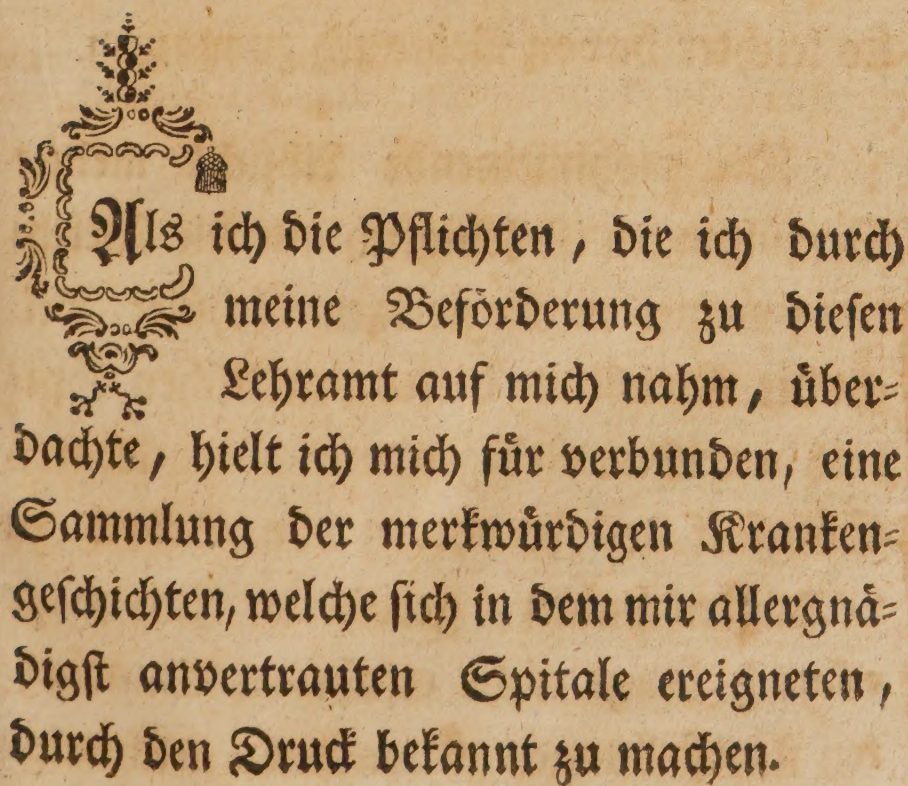 Als ich die Pflichten, die ich durch
meine Beförderung zu diesen
Lehramt auf mich nahm, über-
dachte, hielt ich mich für verbunden, eine
Sammlung der merkwürdigen Kranken-
geschichten, welche sich in dem mir allergnä-
digst anvertrauten Spitale ereigneten,
durch den Druck bekannt zu machen.